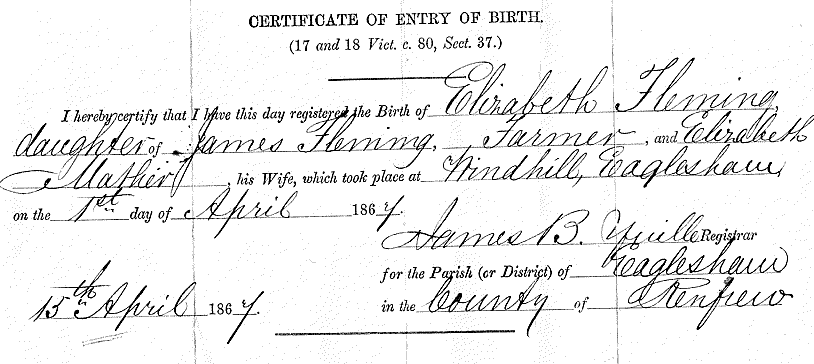 CERTIFICATE OF ENTRY OF BIRTH.
(17 and 18 Vict. c. 80, Sect. 37.)
I hereby certify that I have this day registered the Birth of Elizabeth Fleming,
daughter of James Fleming, Farmer, and Elizabeth
Mather, his Wife, which took place at Windhill, Eaglesham,
on the 1st day of April 1867.
James B. Yuille Registrar
for the Parish (or District) of Eaglesham
15th April 1867. in the County of Renfrew